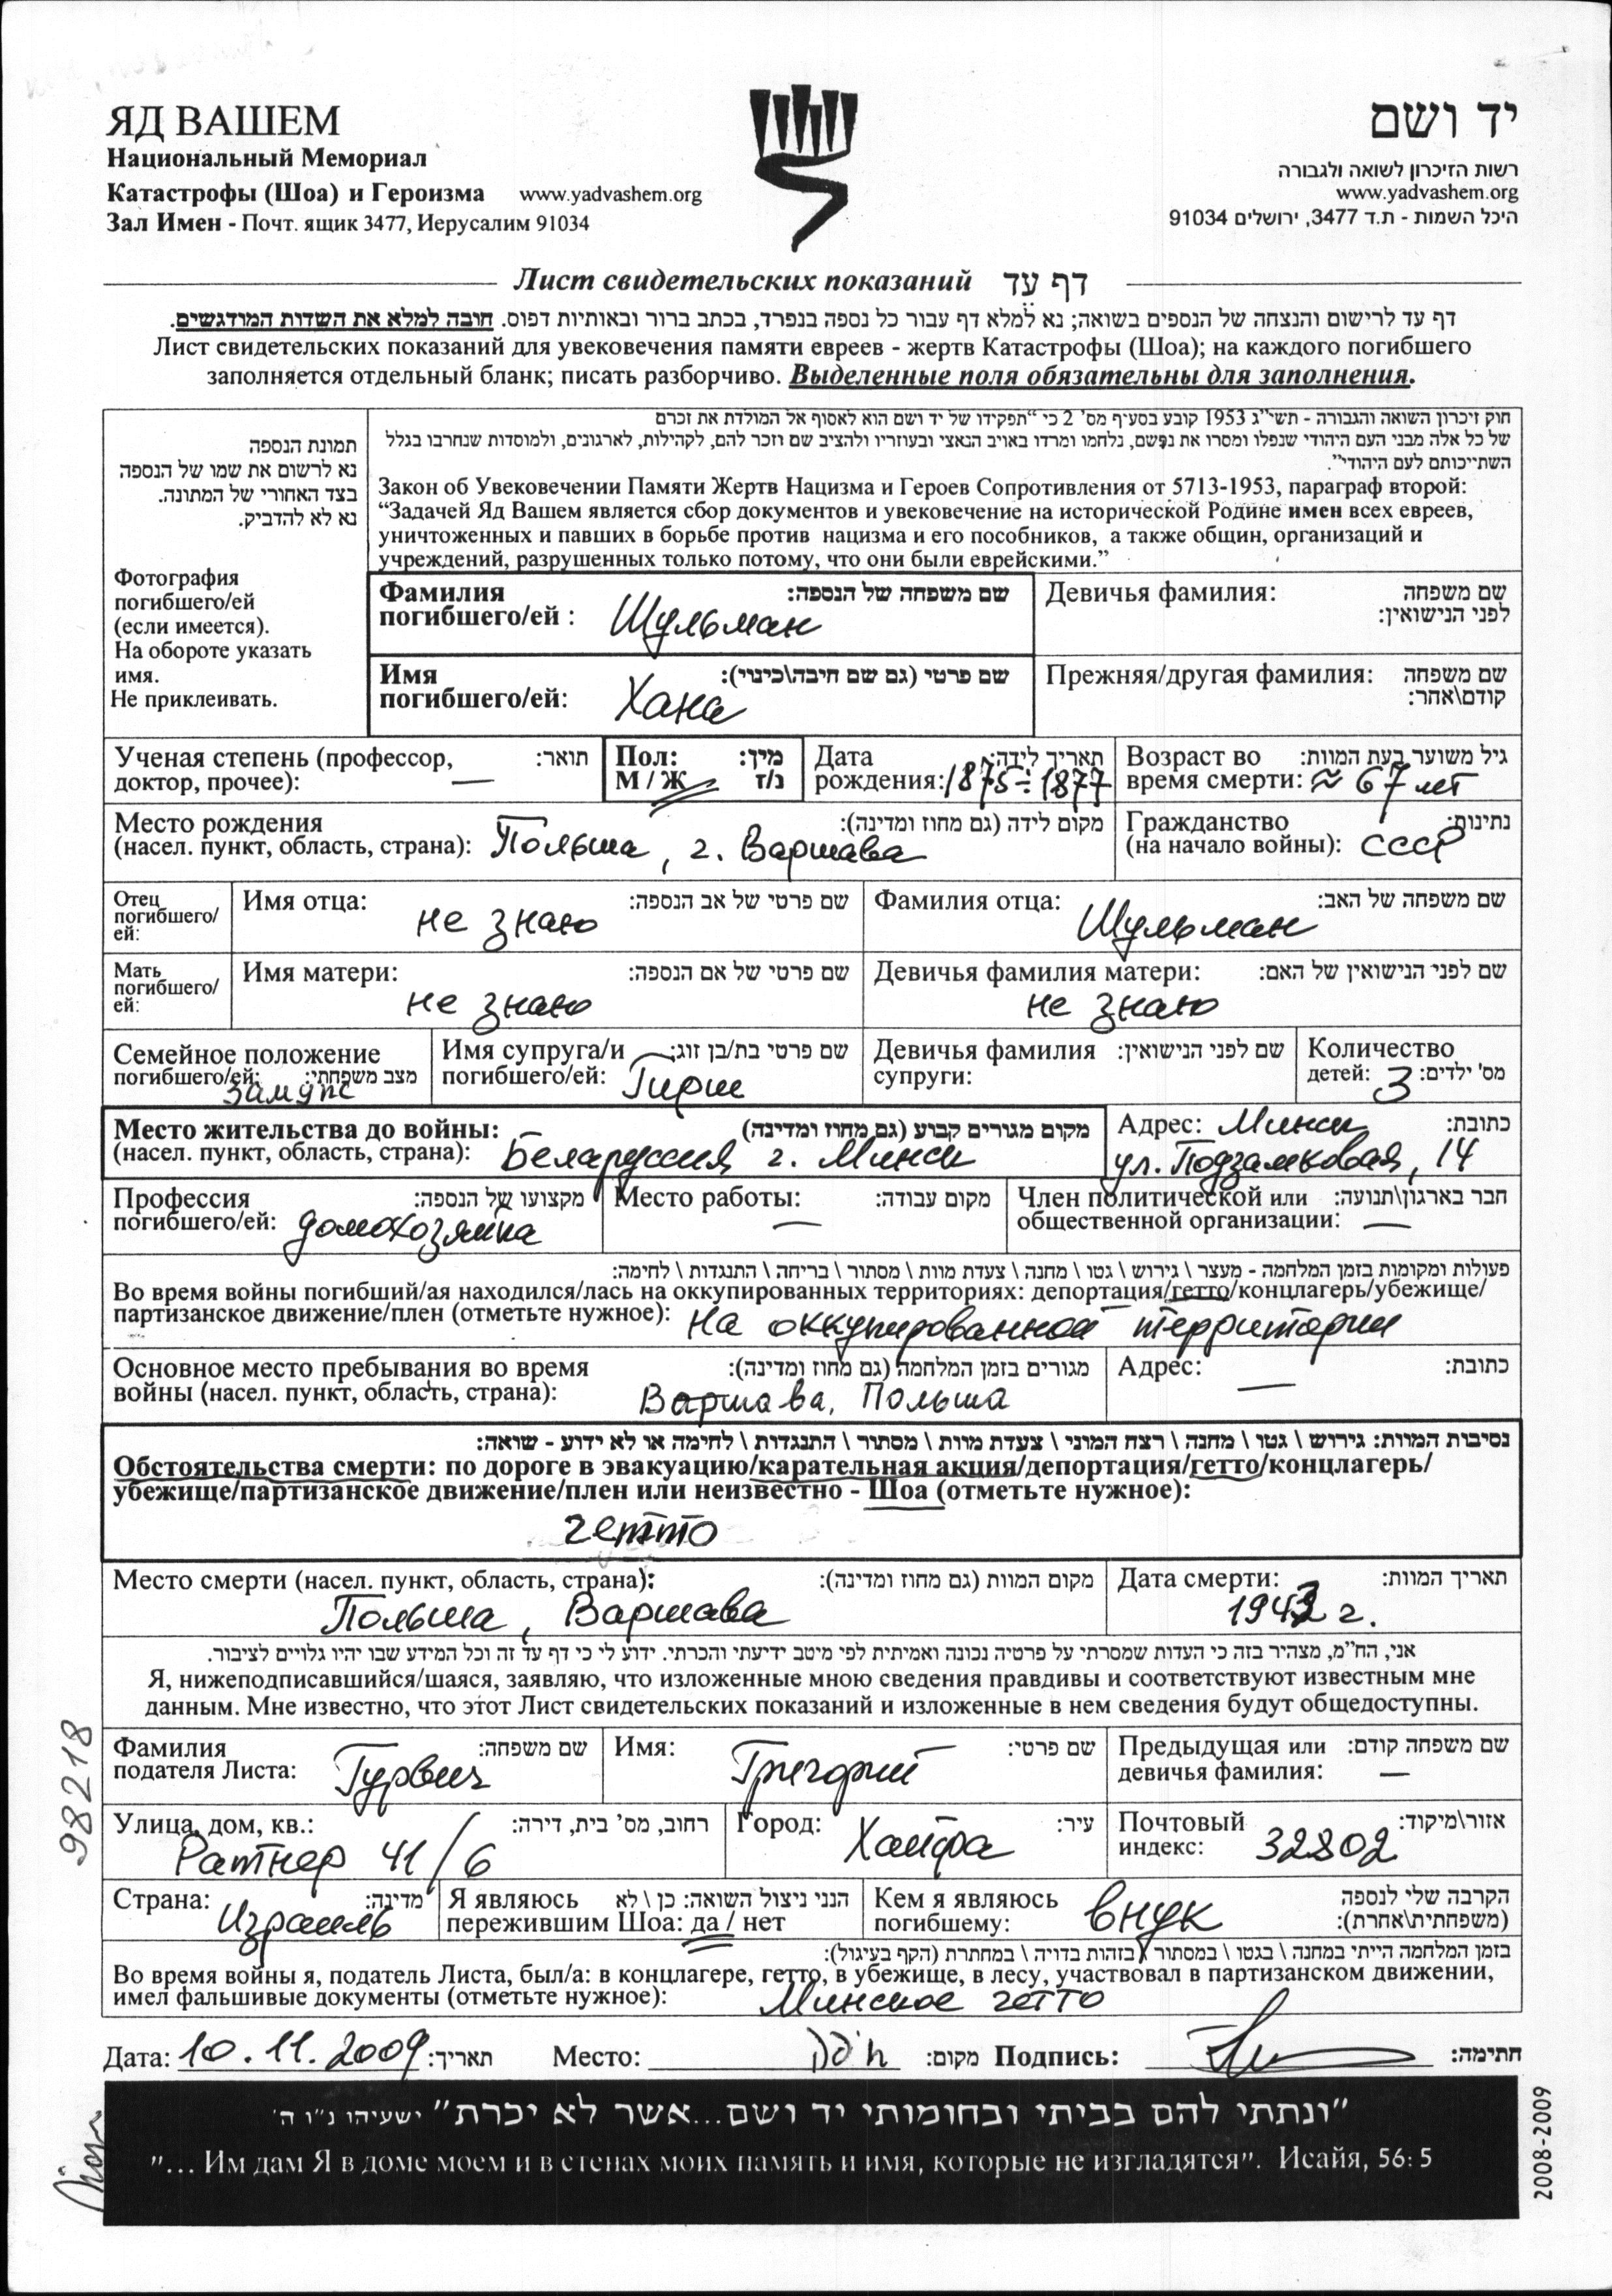 ЯД ВАШЕМ
יד ושם
Национальный Мемориал
Катастрофы (Шоа) и Героизма www.yadvashem.org
Зал Имен - Почт. ящик 3477, Иерусалим 91034
רשות הזיכרון לשואה ולגבורה
www.yadvashem.org
היכל השמות - ת.ד 3477, ירושלים 91034
Лист свидетельских показаний דף עד
דף עד לרישום והנצחה של הנספים בשואה; נא למלא דף עבור כל נספה בנפרד, בכתב ברור ובאותיות דפוס. חובה למלא את השדות המודגשים.
Лист свидетельских показаний для увековечения памяти евреев - жертв Катастрофы (Шоа); на каждого погибшего
заполняется отдельный бланк; писать разборчиво. Выделенные поля обязательны для заполнения.
תמונת הנספה
נא לרשום את שמו של הנספה
בצד האחורי של המתונה.
נא לא להדביק.
Фотография
погибшего/ей
(если имеется).
На обороте указать
имя.
Не приклеивать.
חוק זיכרון השואה והגבורה - תשי"ג 1953 קובע בסעיף מס' 2 כי "תפקידו של יד ושם הוא לאסוף אל המולדת את זכרם
של כל אלה מבני העם היהודי שנפלו ומסרו את נפשם, נלחמו ומרדו באויב הנאצי ובעוזריו ולהציב שם וזכר להם, לקהילות, לארגונים, ולמוסדות שנחרבו בגלל
השתייכותם לעם היהודי".
Закон об Увековечении Памяти Жертв Нацизма и Героев Сопротивления от 5713-1953, параграф второй:
“Задачей Яд Вашем является сбор документов и увековечение на исторической Родине имен всех евреев,
уничтоженных и павших в борьбе против нацизма и его пособников, а также общин, организаций и
учреждений, разрушенных только потому, что они были еврейскими.”
Фамилия שם משפחה של הנספה:
погибшего/ей : Шульман
Девичья фамилия: שם משפחה
לפני הנישואין:
Имя שם פרטי (גם שם חיבה\כינוי):
погибшего/ей: Хана
Прежняя/другая фамилия: שם משפחה
קודם\אחר:
Ученая степень (профессор, תואר:
доктор, прочее): —
Пол: מין:
М / Ж נ/ז
Дата תאריך לידה:
рождения: 1875÷1877
Возраст во גיל משוער בעת המוות:
время смерти: ≈ 67 лет
Место рождения מקום לידה (גם מחוז ומדינה):
(насел. пункт, область, страна): Польша, г. Варшава
Гражданство נתינות:
(на начало войны): СССР
Отец
погибшего/
ей:
Имя отца: שם פרטי של אב הנספה:
не знаю
Фамилия отца: שם משפחה של האב:
Шульман
Мать
погибшего/
ей:
Имя матери: שם פרטי של אם הנספה:
не знаю
Девичья фамилия матери: שם לפני הנישואין של האם:
не знаю
Семейное положение
погибшего/ей: מצב משפחתי:
замуж
Имя супруга/и שם פרטי בת/בן זוג:
погибшего/ей: Гирш
Девичья фамилия שם לפני הנישואין:
супруги:
Количество
детей: 3 מס' ילדים:
Место жительства до войны: מקום מגורים קבוע (גם מחוז ומדינה)
(насел. пункт, область, страна): Беларуссия г. Минск
Адрес: Минск כתובת:
ул. Подзамковая, 14
Профессия מקצועו של הנספה:
погибшего/ей: домохозяйка
Место работы: מקום עבודה:
—
Член политической или חבר בארגון\תנועה:
общественной организации: —
פעולות ומקומות בזמן המלחמה - מעצר \ גירוש \ גטו \ מחנה \ צעדת מוות \ מסתור \ בריחה \ התנגדות \ לחימה:
Во время войны погибший/ая находился/лась на оккупированных территориях: депортация/гетто/концлагерь/убежище/
партизанское движение/плен (отметьте нужное): На оккупированной территории
Основное место пребывания во время מגורים בזמן המלחמה (גם מחוז ומדינה):
войны (насел. пункт, область, страна): Варшава, Польша
Адрес: — כתובת:
נסיבות המוות: גירוש \ גטו \ מחנה \ רצח המוני \ צעדת מוות \ מסתור \ התנגדות \ לחימה או לא ידוע - שואה:
Обстоятельства смерти: по дороге в эвакуацию/карательная акция/депортация/гетто/концлагерь/
убежище/партизанское движение/плен или неизвестно - Шоа (отметьте нужное):
гетто
Место смерти (насел. пункт, область, страна): מקום המוות (גם מחוז ומדינה):
Польша, Варшава
Дата смерти: תאריך המוות:
1943 г.
אני, הח"מ, מצהיר בזה כי העדות שמסרתי על פרטיה נכונה ואמיתית לפי מיטב ידיעתי והכרתי. ידוע לי כי דף עד זה וכל המידע שבו יהיו גלויים לציבור.
Я, нижеподписавшийся/шаяся, заявляю, что изложенные мною сведения правдивы и соответствуют известным мне
данным. Мне известно, что этот Лист свидетельских показаний и изложенные в нем сведения будут общедоступны.
Фамилия שם משפחה:
подателя Листа: Гурвич
Имя: Григорий שם פרטי:
Предыдущая или שם משפחה קודם:
девичья фамилия: —
Улица, дом, кв.: רחוב, מס' בית, דירה:
Ратнер 41/6
Город: Хайфа עיר:
Почтовый אזור\מיקוד:
индекс: 32802
Страна: Израиль מדינה:
Я являюсь הנני ניצול השואה: כן \ לא
пережившим Шоа: да / нет
Кем я являюсь הקרבה שלי לנספה
погибшему: внук (משפחתית\אחרת):
בזמן המלחמה הייתי במחנה \ בגטו \ במסתור \ בזהות בדויה \ במחתרת (הקף בעיגול):
Во время войны я, податель Листа, был/а: в концлагере, гетто, в убежище, в лесу, участвовал в партизанском движении,
имел фальшивые документы (отметьте нужное): Минское гетто
Дата: 10.11.2009 תאריך: Место: חיפה מקום: Подпись: חתימה:
"ונתתי להם בביתי ובחומותי יד ושם...אשר לא יכרת" ישעיהו נ"ו ה'
"... Им дам Я в доме моем и в стенах моих память и имя, которые не изгладятся". Исайя, 56: 5
98218
2008-2009